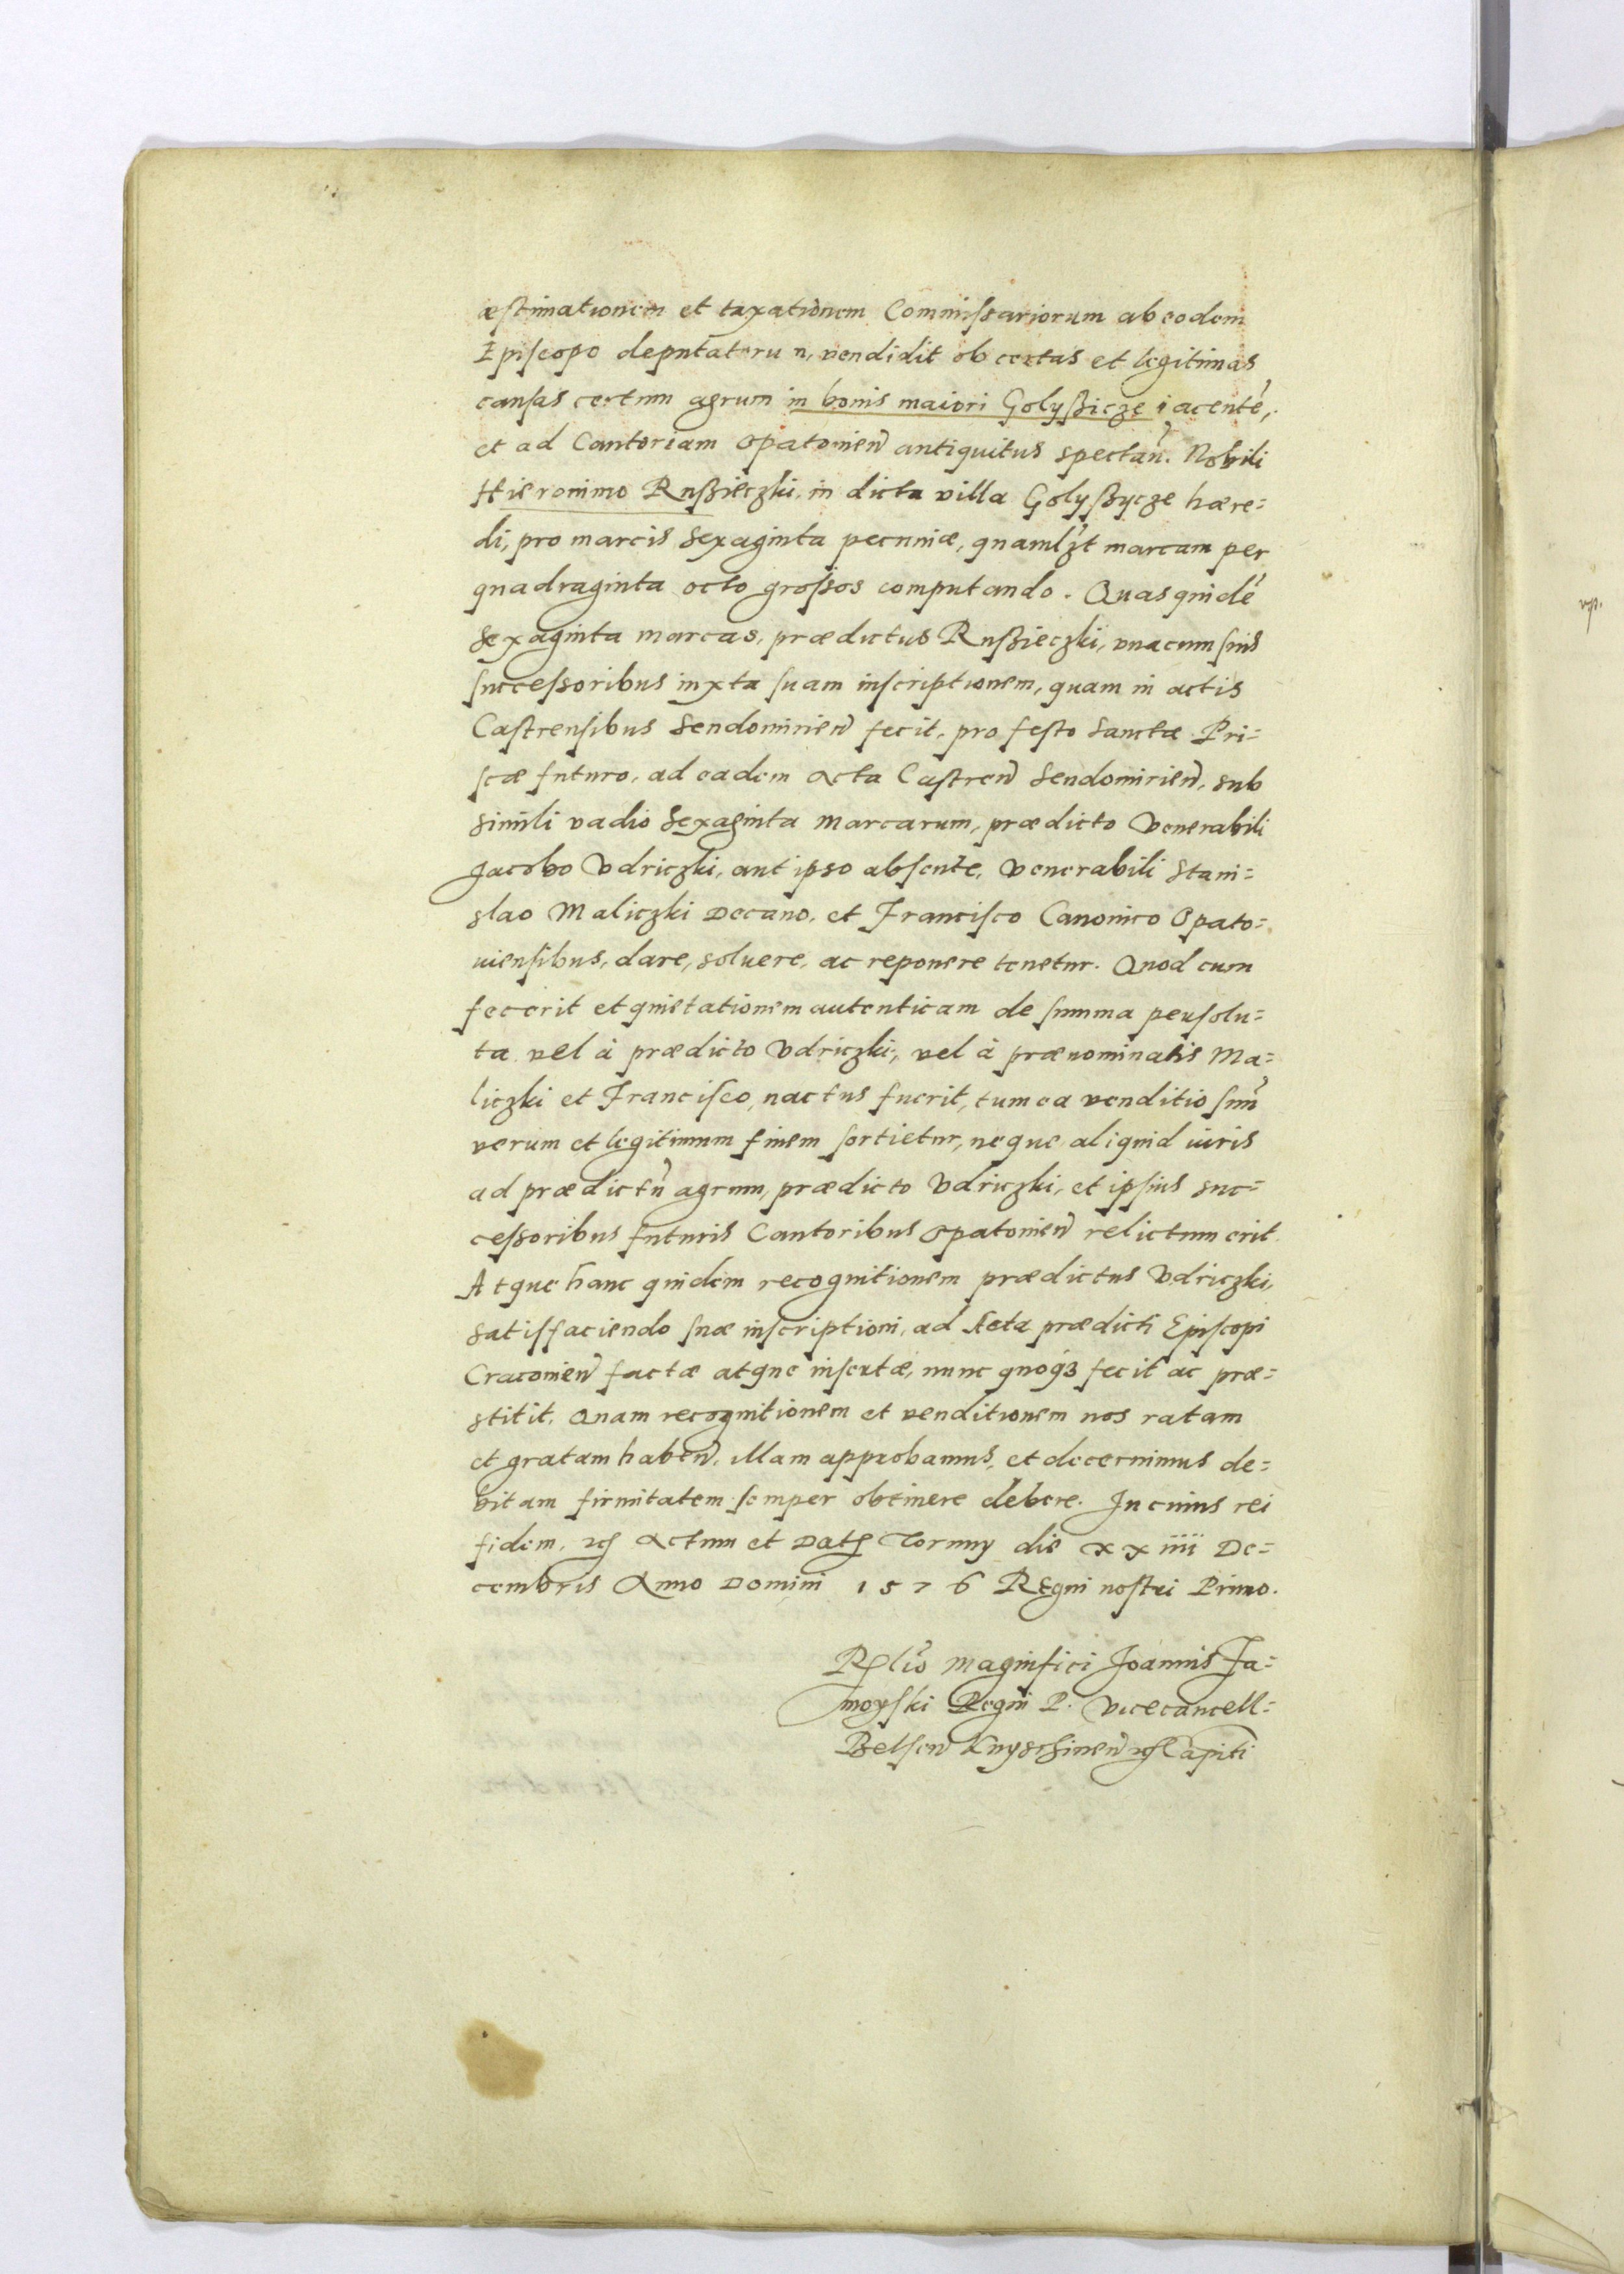 æstimationem et taxationem Commissariorum ab eodem
Episcopo deputatorum, vendidit ob certas et legitimas
causas certum agrum in bonis maiori Golyßicze iacentẽ,
et ad Cantoriam Opatouieñ antiquitus spectañ. Nobili
Hieronimo Rußieczki, in dicta villa Golyßycze hære=
di, pro marcis Sexaginta pecuniæ, quamlꝫt marcam per
quadraginta octo grossos computando. Quas quidẽ
Sexaginta marcas, prædictus Rußieczki, vnacum suis
successoribus iuxta suam inscriptionem, quam in actis
Castrensibus Sendomirieñ fecit, pro festo Sanctæ Pri=
scæ futuro, ad eadem Acta Castreñ Sendomirieñ, sub
simili vadio Sexaginta Marcarum, prædicto Venerabili
Jacobo Vdriczki, aut ipso absente, Venerabili Stani=
slao Maliczki Decano, et Francisco Canonico Opato=
uiensibus, dare, soluere, ac reponere tenetur. Quod cum
fecerit et quietationem autenticam de summa persolu=
ta vel à prædicto Vdriczki, vel à prænominatis Ma=
liczki et Francisco, nactus fuerit, tum ea venditio suũ
verum et legitimum finem sortietur, neque aliquid iuris
ad prædictũ agrum, prædicto Vdriczki, et ipsius suc=
cessoribus futuris Cantoribus Opatouieñ relictum erit.
Atque hanc quidem recognitionem prædictus Vdriczki,
satisfaciendo suæ inscriptioni, ad Acta prædicti Episcopi
Cracouieñ factæ atque insertæ, nunc quoqꝫ fecit ac præ=
stitit. Quam recognitionem et venditionem nos ratam
et gratam habeñ, illam approbamus, et decernimus de=
bitam firmitatem semper obtinere debere. In cuius rei
fidem, ꝛc̃ Actum et Datꝭ Toruny die xxiiii De=
cembris Anno Domini 1576 Regni nostri Primo.
Rꝑlio Magnifici Joannis Za=
moyski Regni P. Vicecancell=
Belseñ Knyschineñ ꝛc̃ Capiti